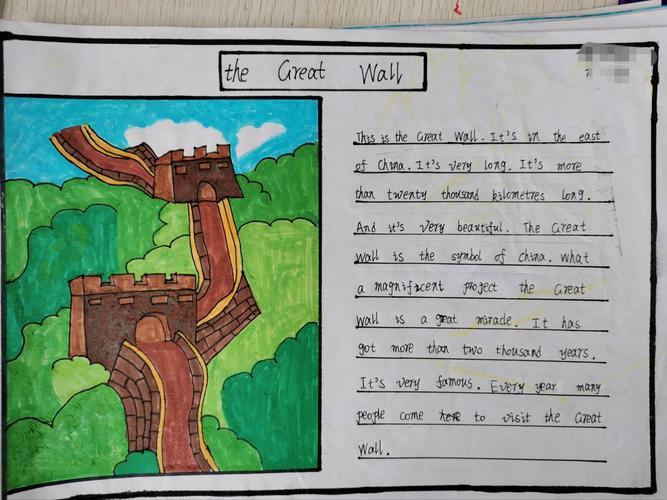 the Great Wall
This is the Great Wall. It's in the east
of China. It's very long. It's more
than twenty thousand kilometres long.
And it's very beautiful. The Great
Wall is the symbol of China. What
a magnificent project the Great
Wall is a great miracle. It has
got more than two thousand years.
It's very famous. Every year many
people come here to visit the Great
Wall.